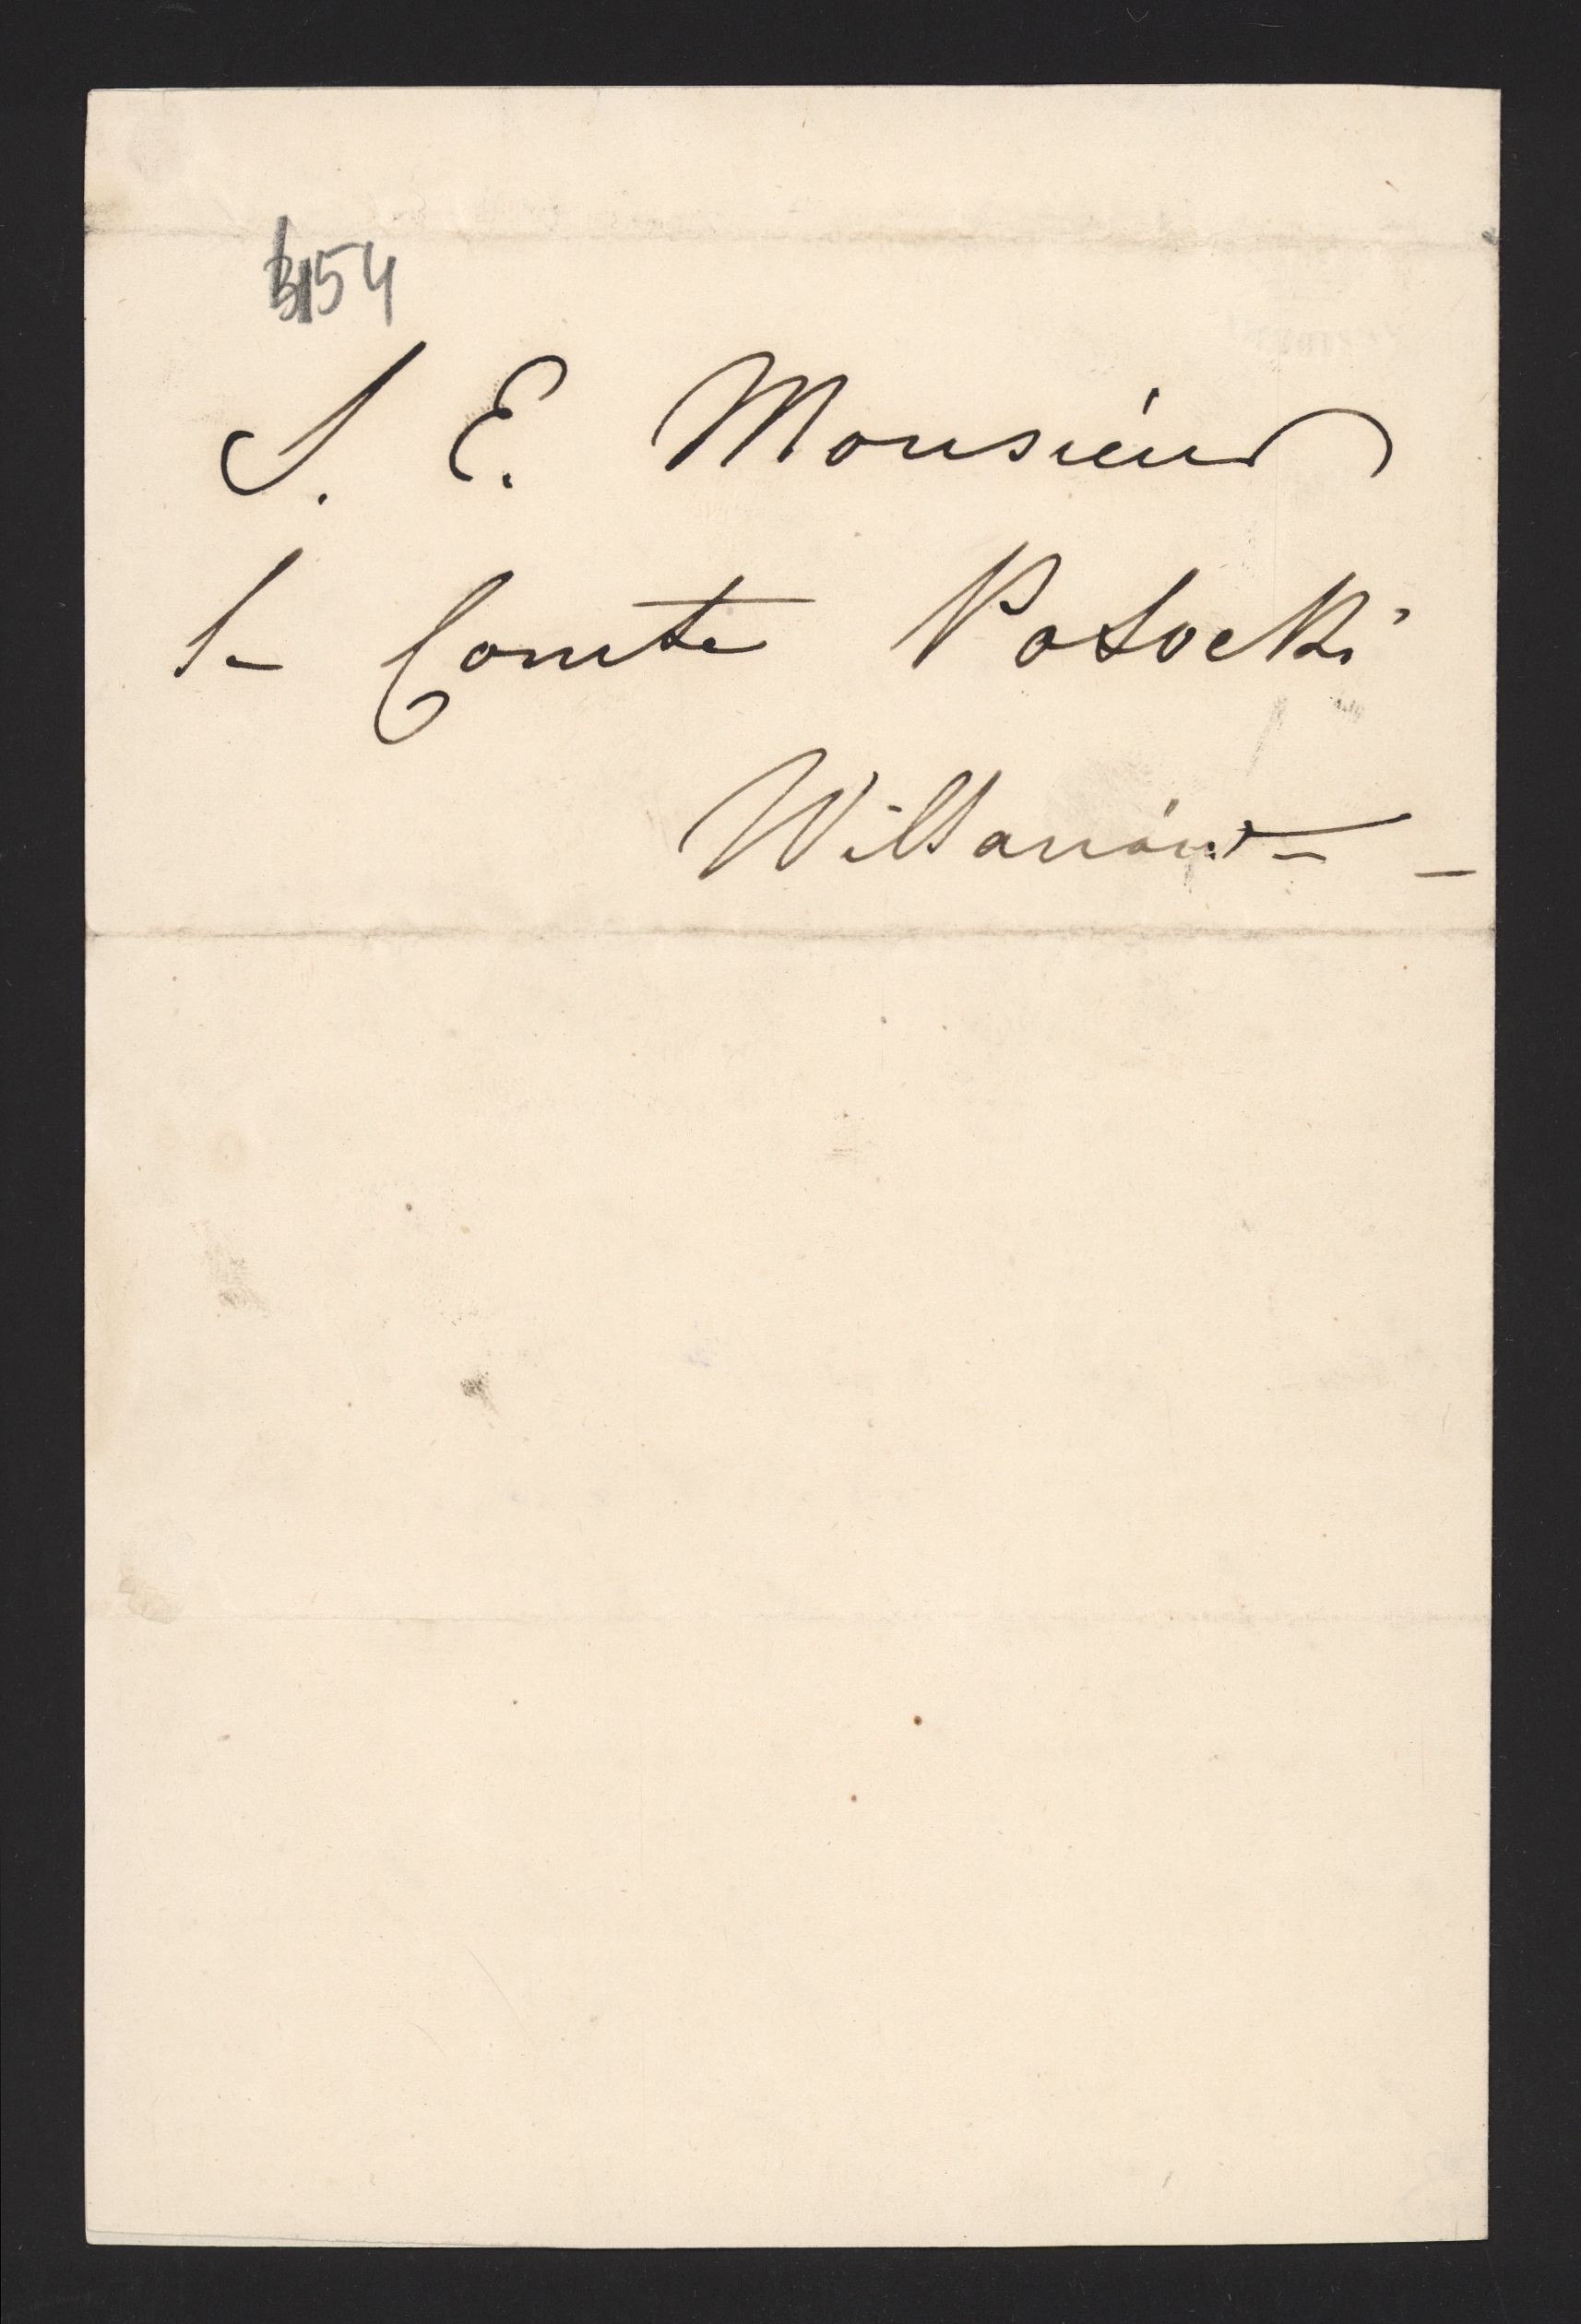 154
S. E. Monsieur
le Comte Potocki
Willanów